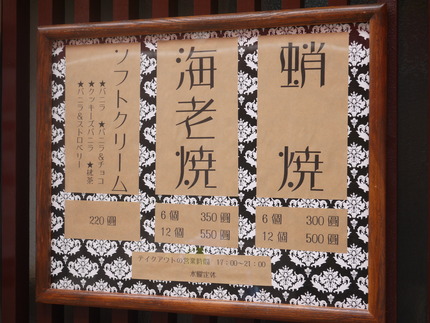 蛸焼
6個 300圓
12個 500圓
海老焼
6個 350圓
12個 550圓
ソフトクリーム
★バニラ ★バニラ&チョコ
★クッキーズバニラ ★抹茶
★バニラ&ストロベリー
220圓
テイクアウトの営業時間 17:00~21:00
水曜定休